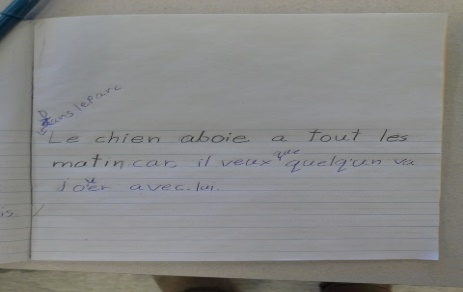 Dans le parc
Le chien aboie a tout les
matin car il veux que quelqu'un va
jouer avec lui.
is